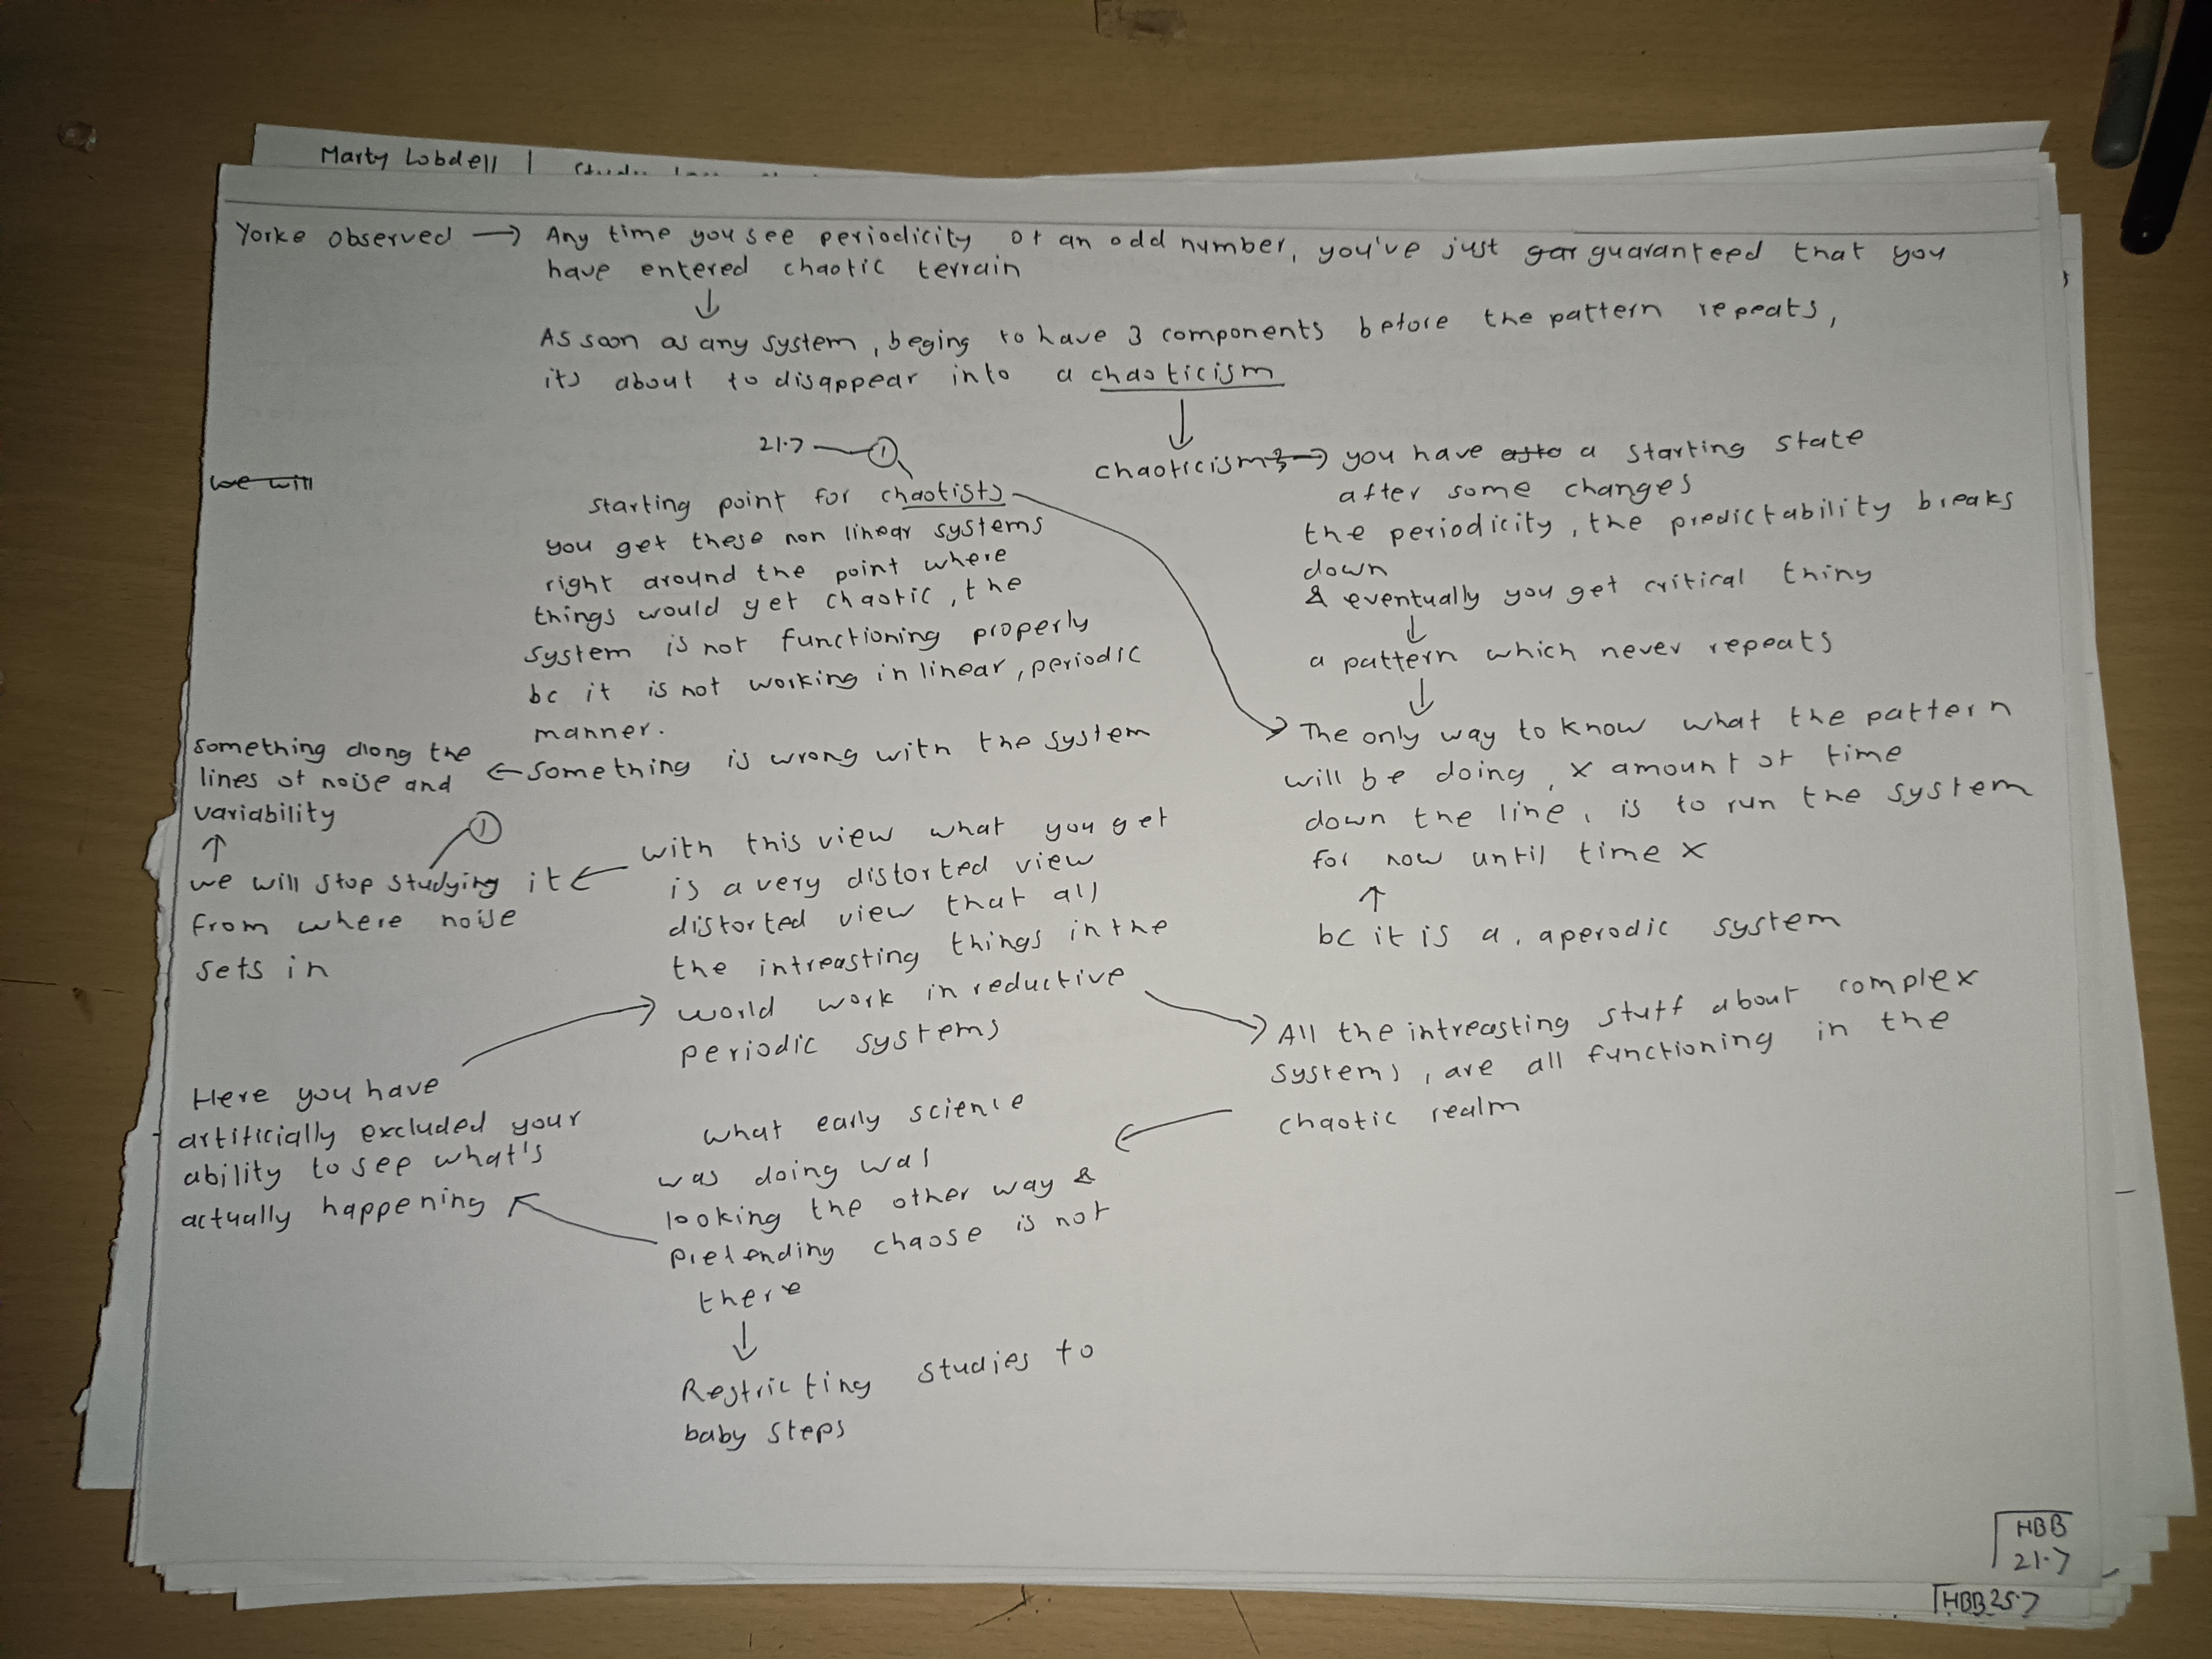 Marty Lobdell |
Yorke observed → Any time you see periodicity of an odd number, you've just gar guaranteed that you
have entered chaotic terrain
↓
As soon as any system, beging to have 3 components before the pattern repeats,
its about to disappear into a chaoticism
↓
chaoticism → you have a starting state
after some changes
the periodicity, the predictability breaks
down
& eventually you get critical thing
↓
a pattern which never repeats
↓
The only way to know what the pattern
will be doing, x amount of time
down the line, is to run the system
for now until time x
↑
bc it is a, aperodic system
21.7 — 1
we will
starting point for chaotists
you get these non linear systems
right around the point where
things would get chaotic, the
system is not functioning properly
bc it is not working in linear, periodic
manner.
← something is wrong with the system
something along the
lines of noise and
variability
↑
1
we will stop studying it ←
from where noise
sets in
with this view what you get
is a very distorted view
distorted view that all
the intreasting things in the
→ world work in reductive
periodic systems
→ All the intreasting stuff about complex
systems, are all functioning in the
chaotic realm
←
what early science
was doing was
looking the other way &
pretending chaose is not
there
↓
Restricting studies to
baby steps
Here you have
artificially excluded your
ability to see what's
actually happening
HBB
21.7
HBB 25.7